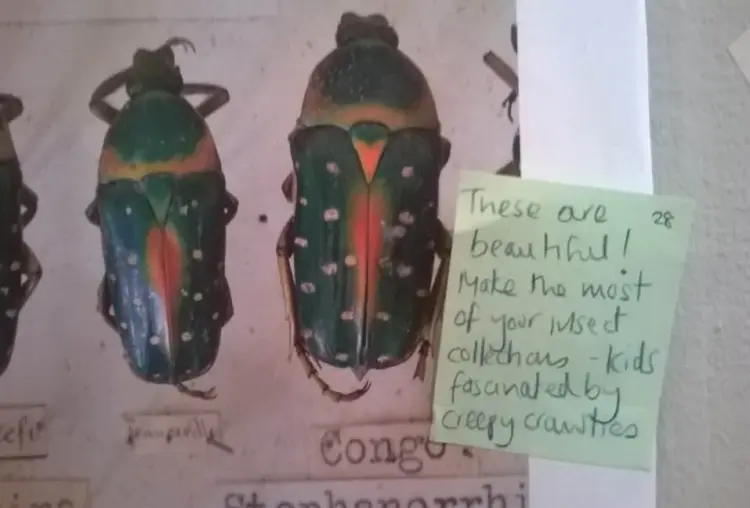 These are 28
beautiful!
Make the most
of your insect
collections - kids
fascinated by
creepy crawlies
Congo.
Stephanorrhi